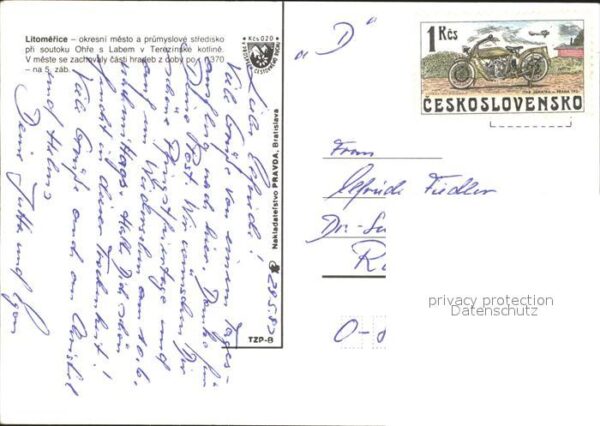 Litoměřice – okresní město a průmyslové středisko
při soutoku Ohře s Labem v Terezínské kotlině.
V městě se zachovaly části hradeb z doby po r. 1370
– na 5. záb.
Kčs 0,20
"D"
1 Kčs
ČESKOSLOVENSKO
Liebe Elfriede!
Viele Grüße von einem Tages-
ausflug nach hier. Danke für
Deine Post. Wir wünschen Dir
schöne Pfingstfeiertage und
auf ein Wiedersehen am 10.6.
Halt Dich schön
bei dieser Trockenheit!
Viele Grüße auch an
und Helmi
Deine Jutta und
28.5.83
Nakladatelstvo PRAVDA, Bratislava
TZP-B
Frau
Elfriede Fiedler
Dr.-
O-
privacy protection
Datenschutz